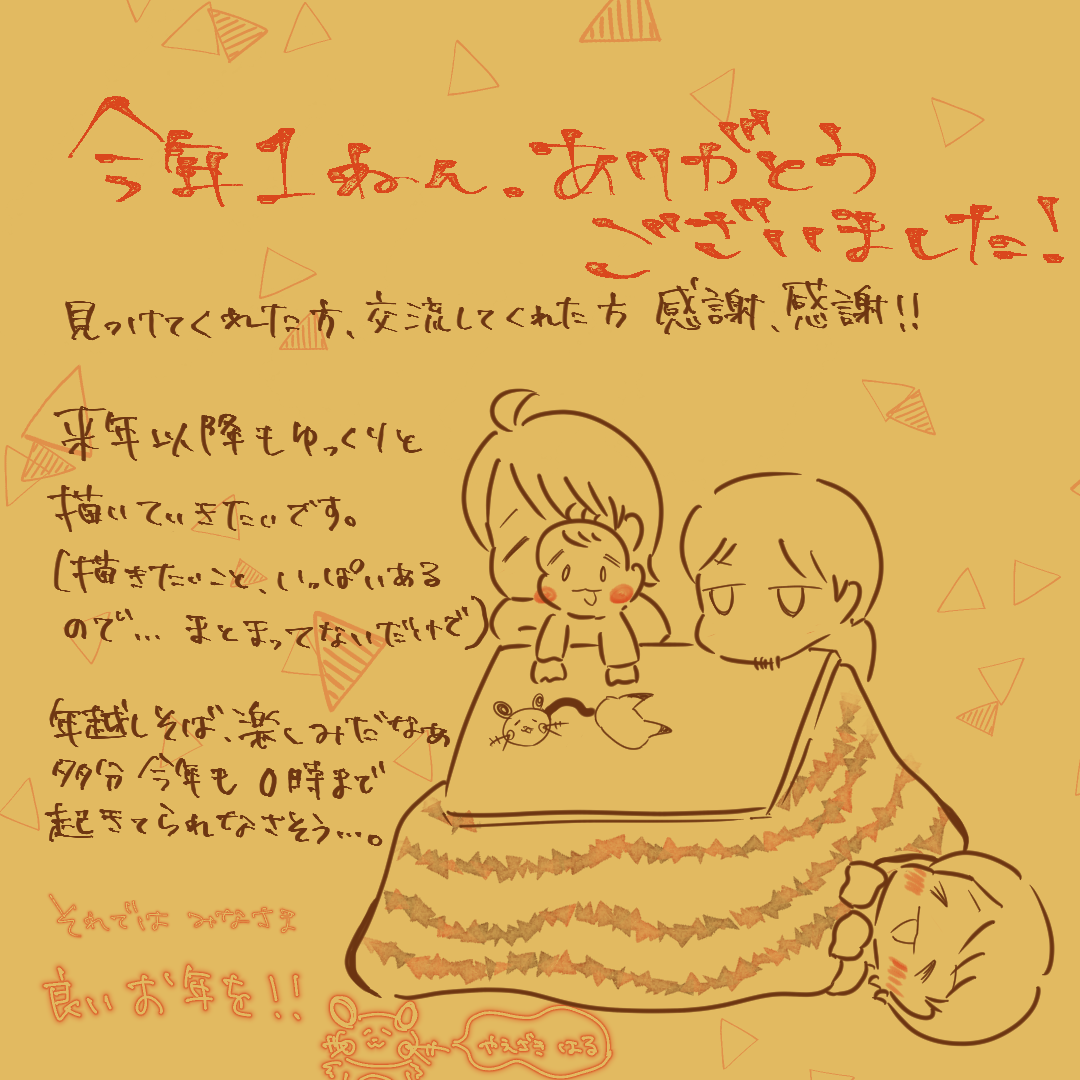 今年1ねん、ありがとう
ございました!
見つけてくれた方、交流してくれた方 感謝、感謝!!
来年以降もゆっくりと
描いていきたいです。
(描きたいこと、いっぱいある
ので… まとまってないだけで)
年越しそば、楽しみだなぁ
多分 今年も 0時まで
起きてられなさそう…。
それでは みなさま
良いお年を!!
やえざき はる